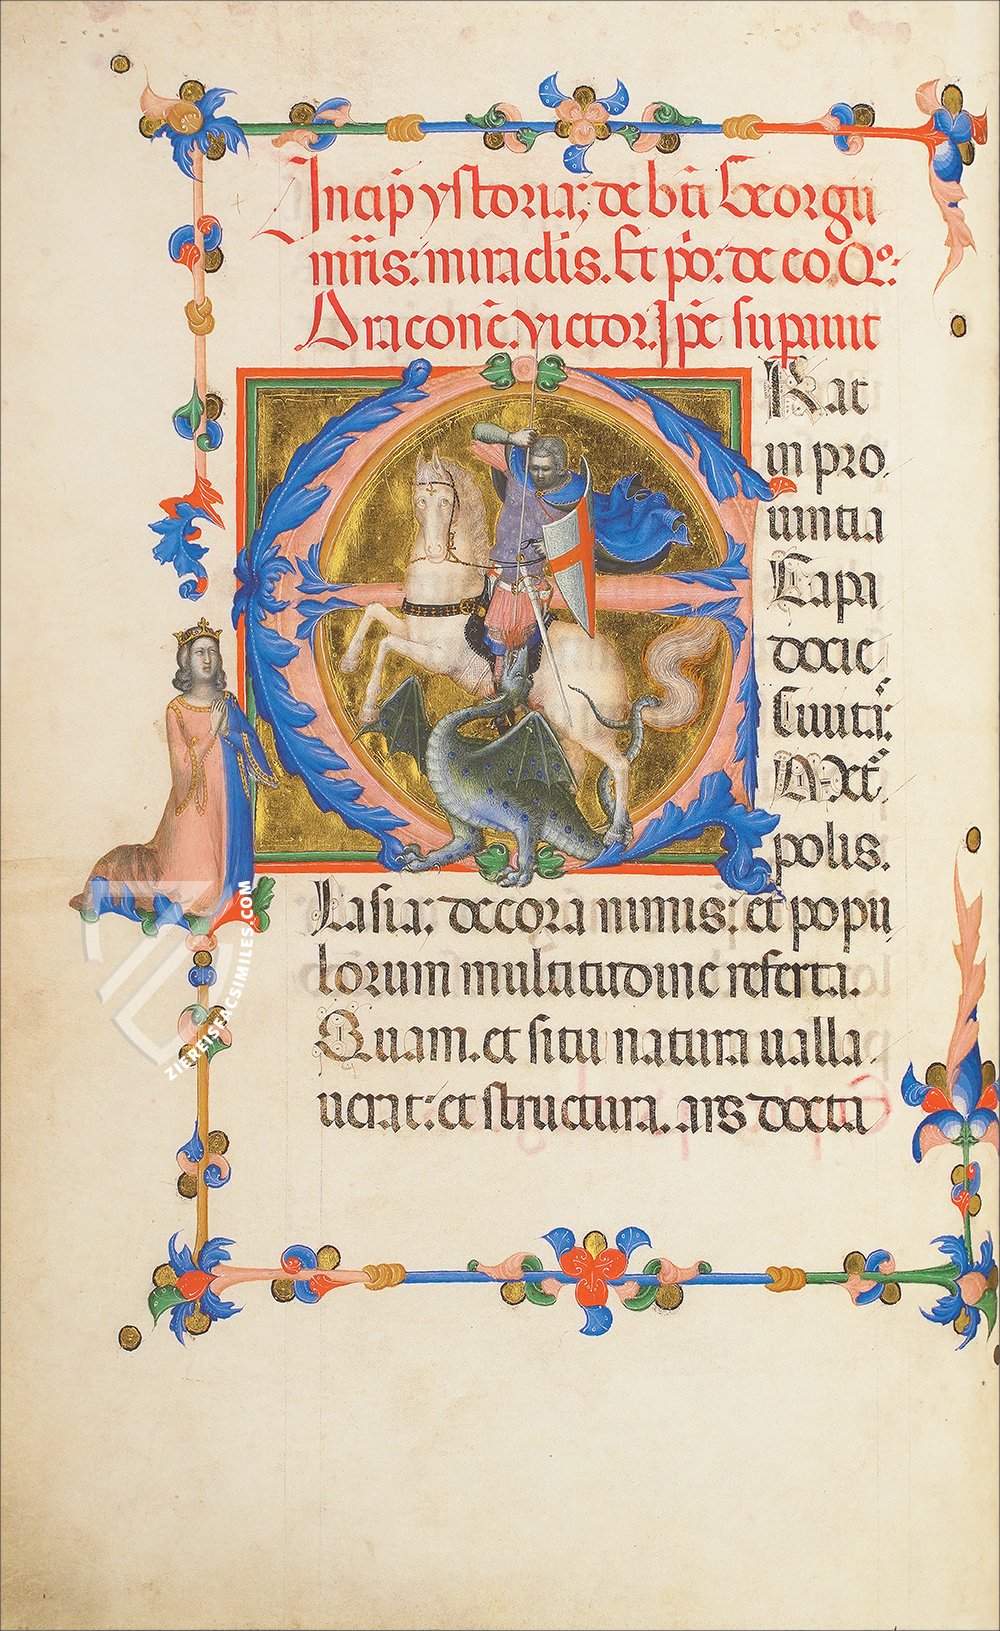 Incip ystoria; de bti Georgii
mris: miraclis. Et po: de eo. Qo:
Draconē. victor. Ipē supauit
Erat
in pro
uintia
Capa
docie
Ciuita:
Metro
polis.
Lasia: decora nimis: et popu
lorum multitudine referta.
Quam. et situ natura ualla
uerat: et structura. ars docta
ZIEREISFACSIMILES.COM